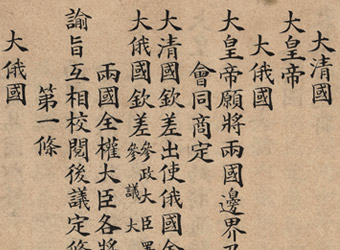 大清國
大皇帝
大俄國
大皇帝願將兩國邊界及
會同商定
大清國欽差出使俄國全
大俄國欽差參政大臣署
議大
兩國全權大臣各將
諭旨互相校閱後議定條
第一條
大俄國